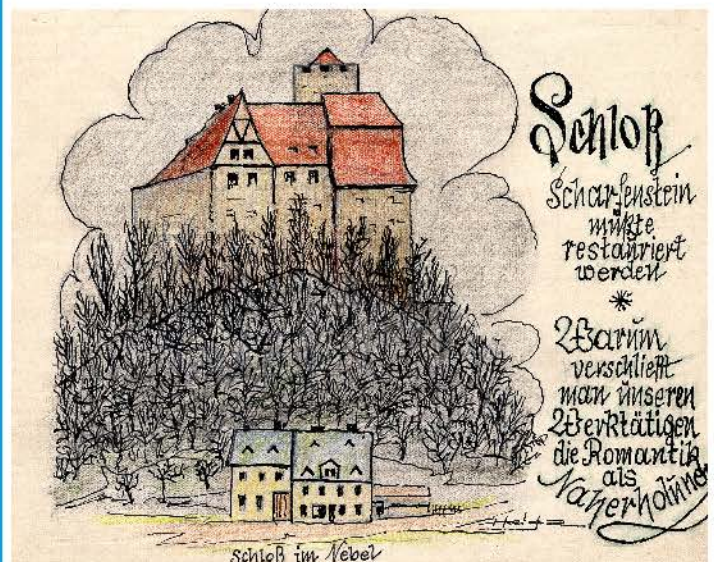 Schloß
Scharfenstein
müßte
restauriert
werden
*
Warum
verschließt
man unseren
Werktätigen
die Romantik
als
Naherholung
Schloß im Nebel